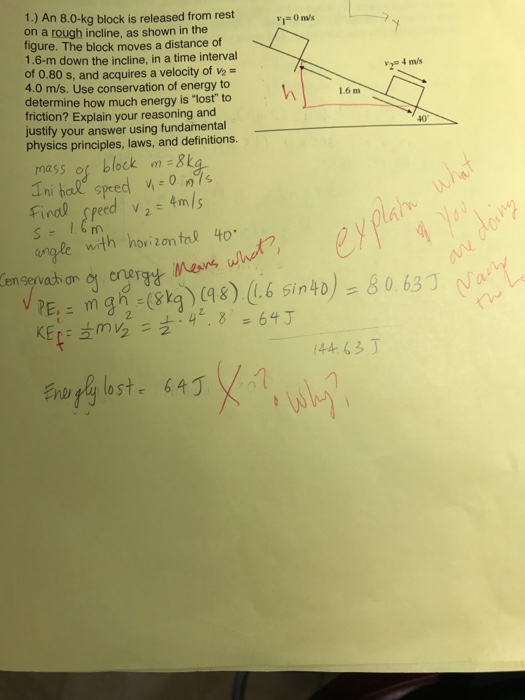 1.) An 8.0-kg block is released from rest
on a rough incline, as shown in the
figure. The block moves a distance of
1.6-m down the incline, in a time interval
of 0.80 s, and acquires a velocity of v₂ =
4.0 m/s. Use conservation of energy to
determine how much energy is "lost" to
friction? Explain your reasoning and
justify your answer using fundamental
physics principles, laws, and definitions.
v₁= 0 m/s
y
v₂= 4 m/s
h
1.6 m
40°
mass of block m = 8kg
Initial speed v₁ = 0 m/s
Final speed v₂ = 4m/s
S = 1.6m
angle with horizontal 40°
Conservation of energy Means what?
explain what
you
are doing
PEi = mgh = (8kg)(9.8).(1.6 sin40) = 80.63J
KEf = ½mv₂ = ½ · 4² . 8 = 64J
144.63 J
Energly lost = 64J X ? why?